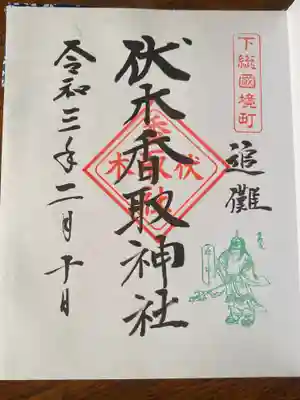 下総國境町
追儺
伏木香取神社
令和三年二月十日